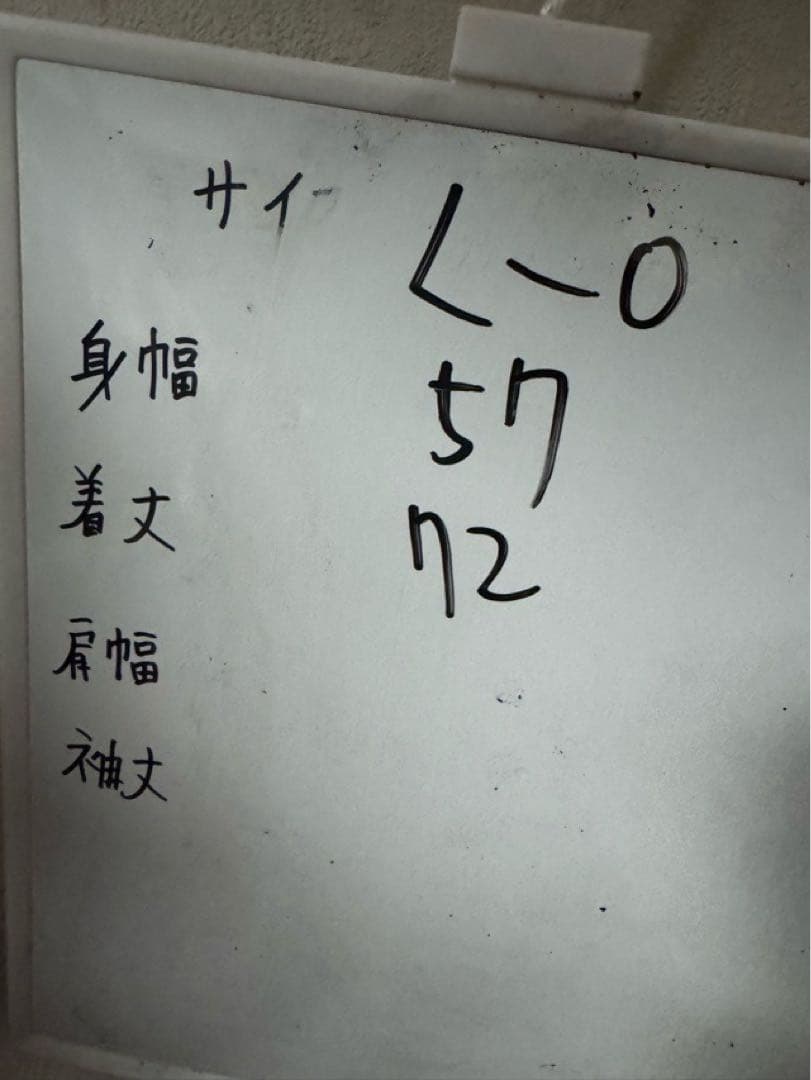 サイ L-O
身幅 57
着丈 72
肩幅
袖丈